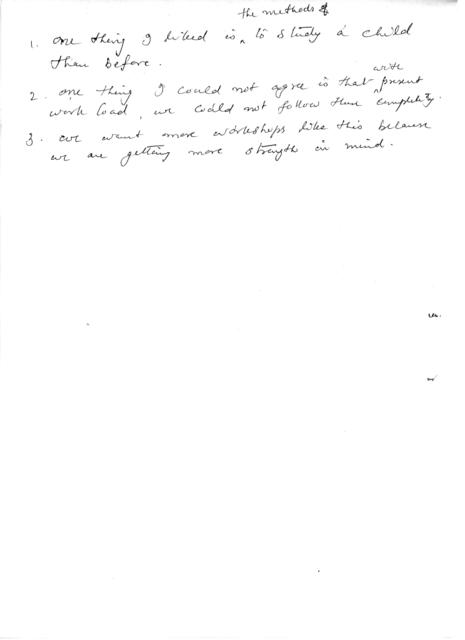 the methods of
1. one thing I liked is ^ to study a child
than before.
with
2. one thing I could not agree is that ^ present
work load, we could not follow them completely.
3. we want more workshops like this because
we are getting more strength in mind.